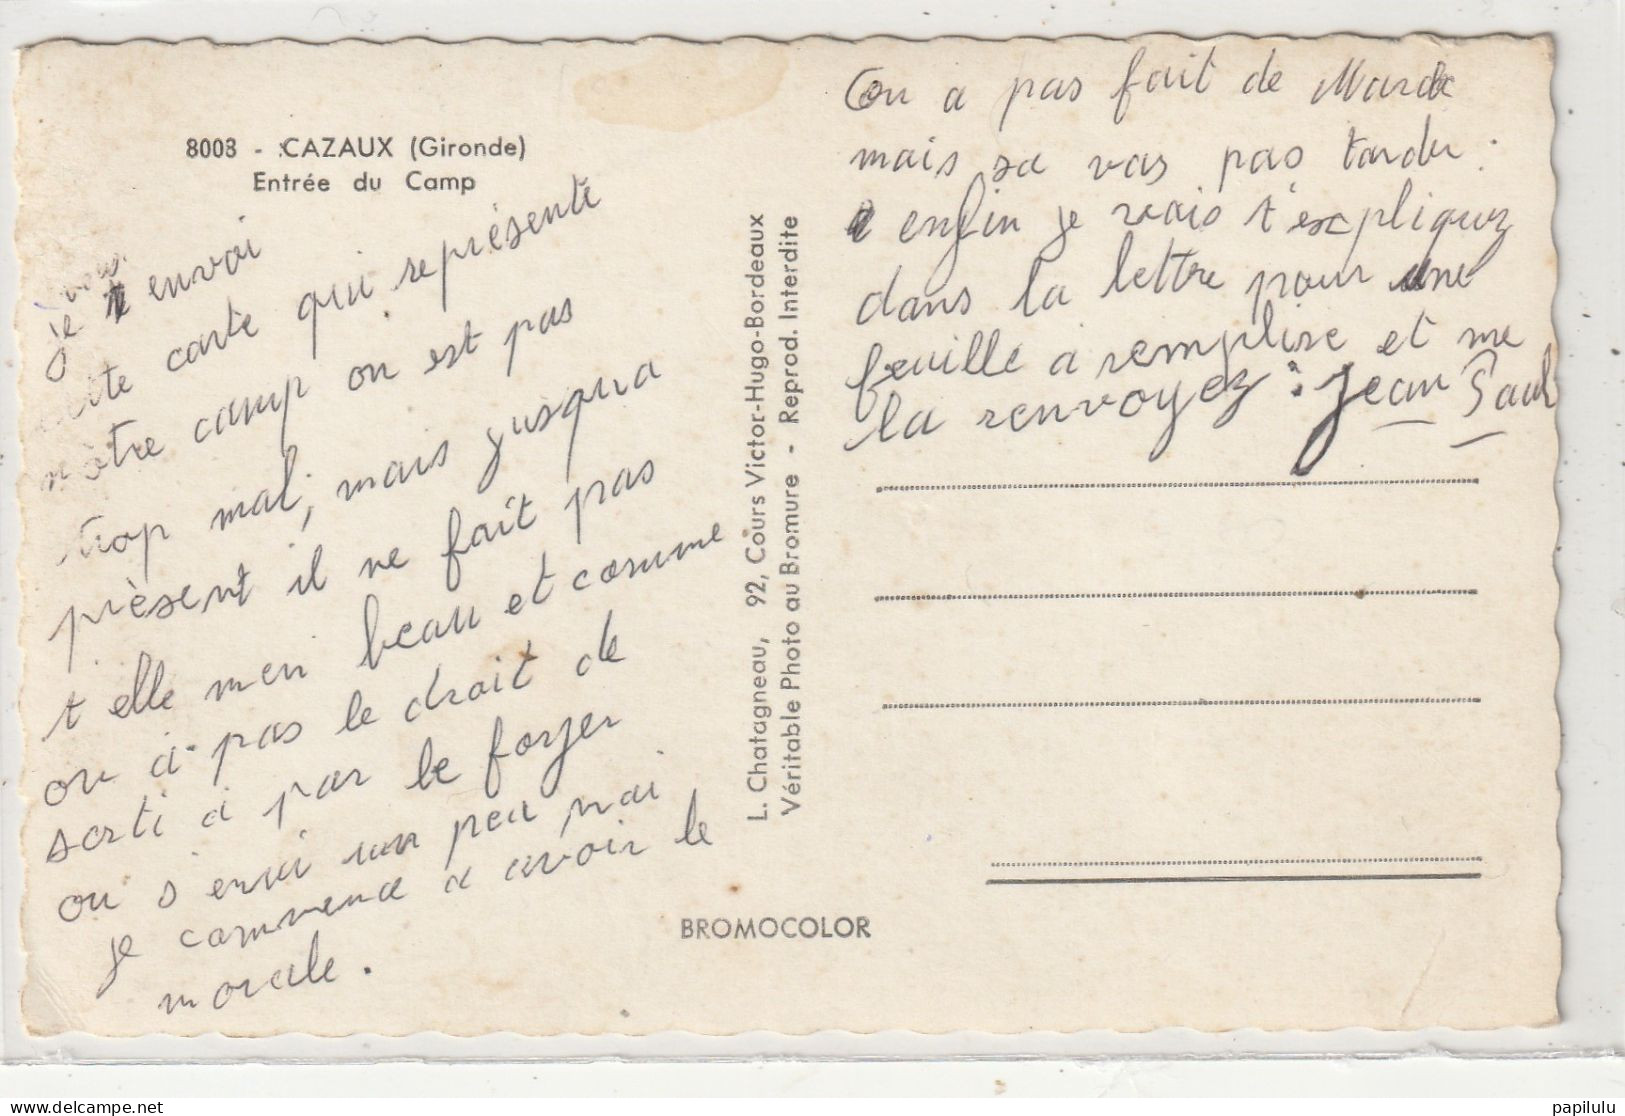 8003 - CAZAUX (Gironde)
Entrée du Camp
je vous envoi
cette carte qui représente
nôtre camp on est pas
trop mal, mais jusqua
présent il ne fait pas
t elle men beau et comme
on a pas le droit de
sorti a par le foyer
on s'ennui un peu mai
je commence a avoir le
morale.
L. Chatagneau, 92, Cours Victor-Hugo-Bordeaux
Véritable Photo au Bromure - Reprod. Interdite
BROMOCOLOR
on a pas fait de
mais sa vas pas tarder.
enfin je vais t'expliquez
dans la lettre pour une
feuille a remplire et me
la renvoyez : Jean Paul
papilulu